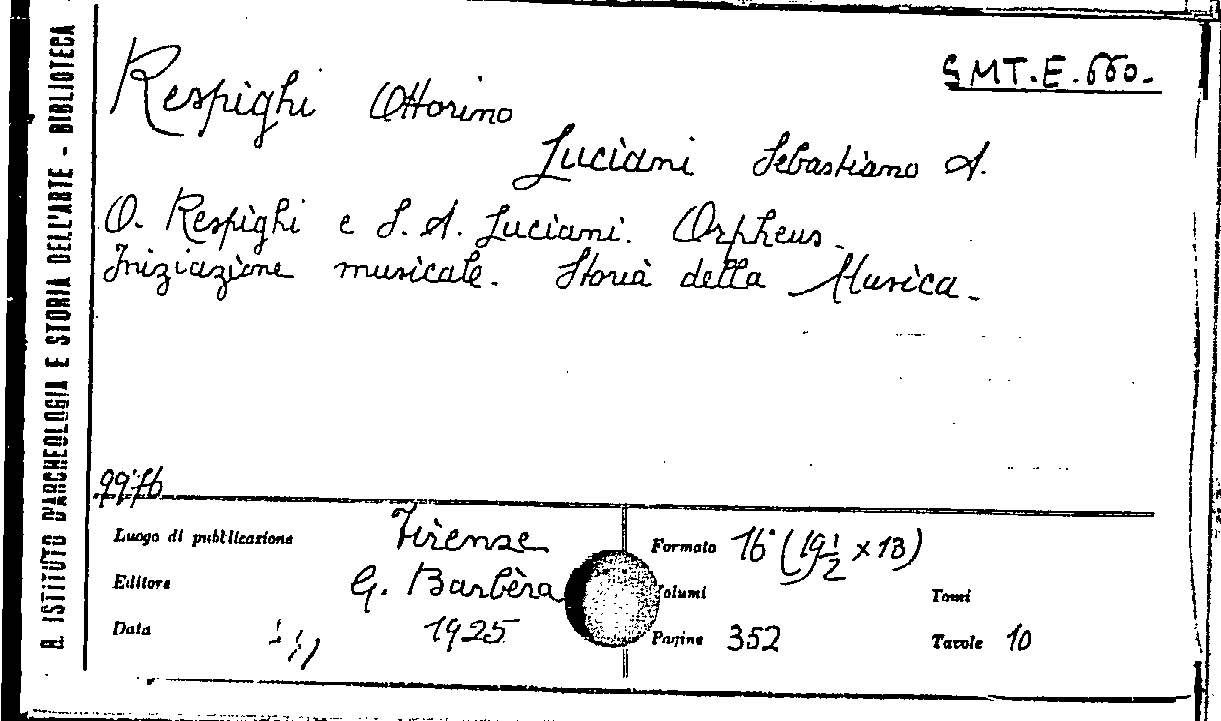 R. ISTITUTO D'ARCHEOLOGIA E STORIA DELL'ARTE - BIBLIOTECA
GMT.E.660.
Respighi Ottorino
Luciani Sebastiano A.
O. Respighi e S. A. Luciani. Orpheus.
Iniziazione musicale. Storia della Musica.
Luogo di pubblicazione Firenze
Editore G. Barbèra
Data 1925
Formato 16° (19 1/2 x 13)
Volumi Tomi
Pagine 352 Tavole 10